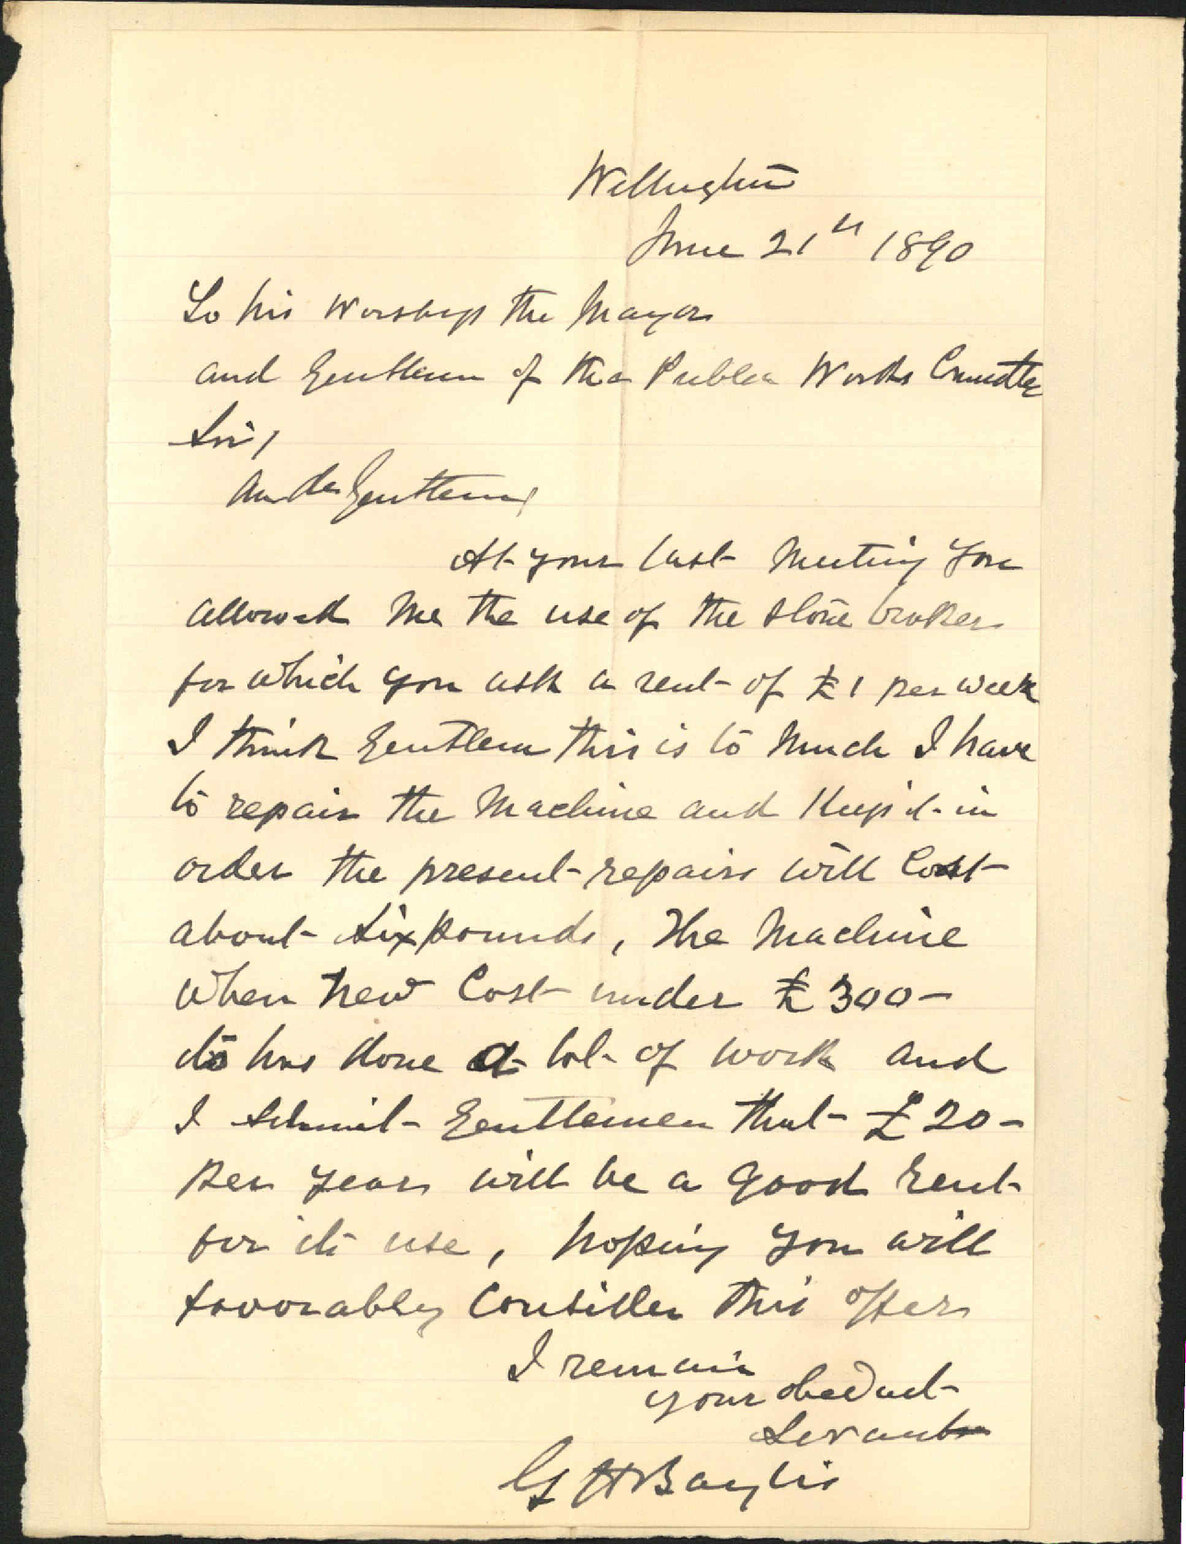 Wellington
June 21st 1890
To his Worship the Mayor
and Gentlemen of the Public Works Committee
Sir,
and Gentlemen,
At your last Meeting you
allowed Me the use of the stone broker
for which you ask a rent of £1 per week
I think Gentlemen this is to Much I have
to repair the Machine and Keep it in
order the present repairs will Cost
about six pounds, The Machine
when new Cost under £300-
its has done a lot of work and
I submit Gentlemen that £20-
per year will be a good rent
for its use, hoping you will
favorably Consider this offer
I remain
your obedient
Servant
G H Baylis